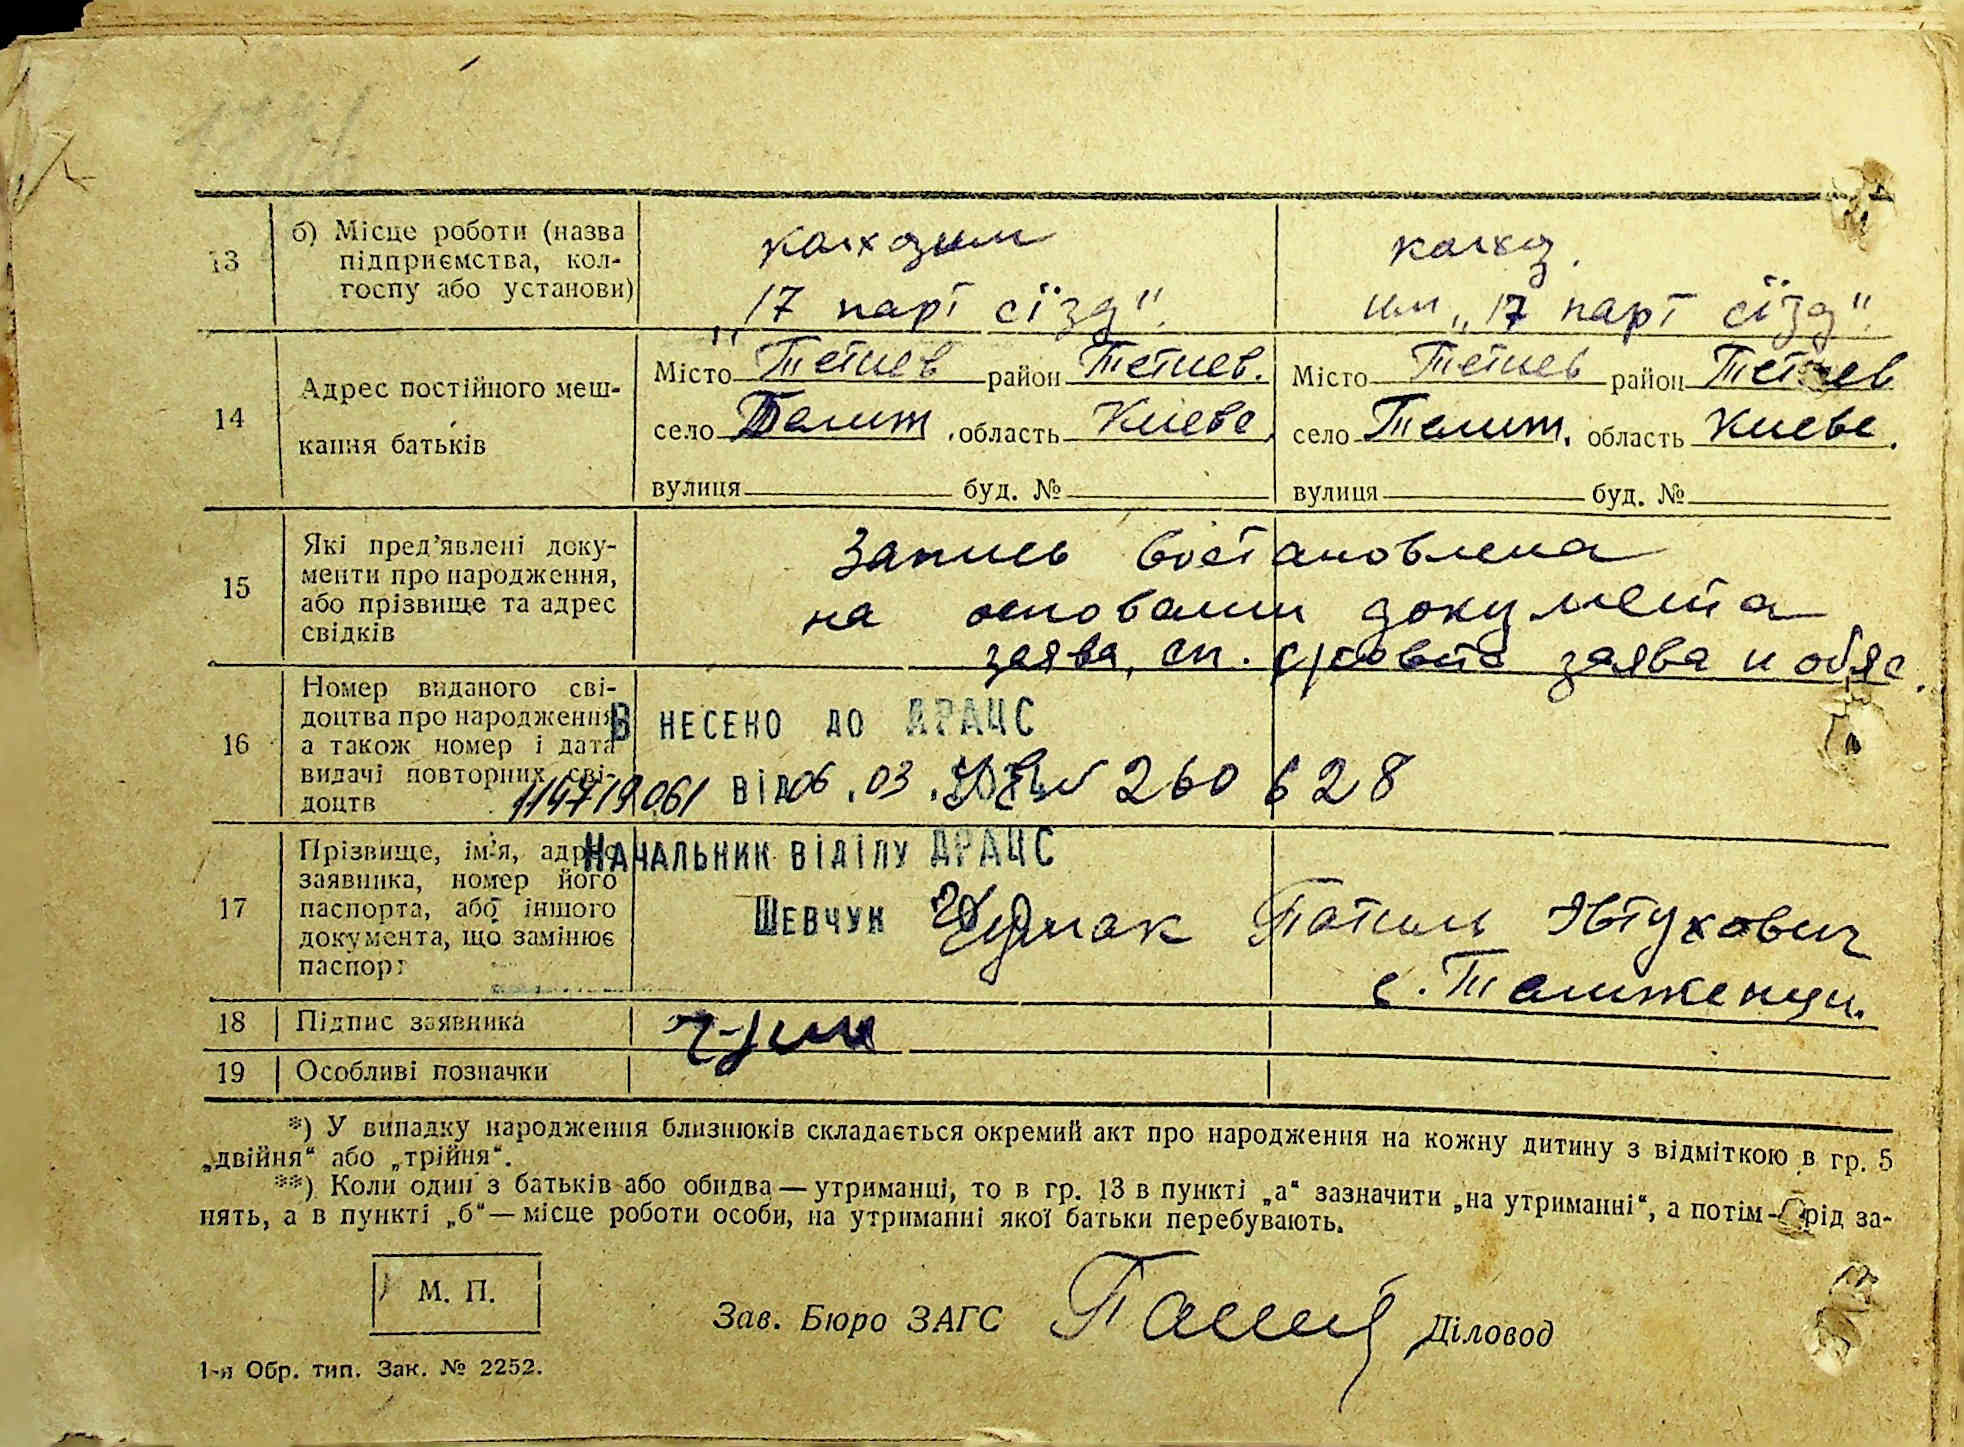 13
б) Місце роботи (назва
підприємства, кол-
госпу або установи)
колхоз им
„17 парт сїзд"
колхоз.
им „17 парт сїзд"
14
Адрес постійного меш-
кання батьків
Місто Тетиев район Тетиев.
село Телиж. область Киевс.
вулиця буд. №
Місто Тетиев район Тетиев
село Телиж. область Киевс.
вулиця буд. №
15
Які пред’явлені доку-
менти про народження,
або прізвище та адрес
свідків
Запись востановлена
на основании документа
заява, сп. с/совета заява и обяс.
16
Номер виданого сві-
доцтва про народження
а також номер і дата
видачі повторних сві-
доцтв
ВНЕСЕНО ДО ДРАЦС
від 06.03. № 260628
НАЧАЛЬНИК ВІДІЛУ ДРАЦС
ШЕВЧУК
17
Прізвище, ім’я, адрес
заявника, номер його
паспорта, або іншого
документа, що замінює
паспорт
Евтухович
с. Телиженци.
18
Підпис заявника
19
Особливі позначки
*) У випадку народження близнюків складається окремий акт про народження на кожну дитину з відміткою в гр. 5
„двійня“ або „трійня“.
**) Коли один з батьків або обидва — утриманці, то в гр. 13 в пункті „а“ зазначити „на утриманні“, а потім — рід за-
нять, а в пункті „б“ — місце роботи особи, на утриманні якої батьки перебувають.
М. П.
Зав. Бюро ЗАГС
Діловод
1-я Обр. тип. Зак. № 2252.